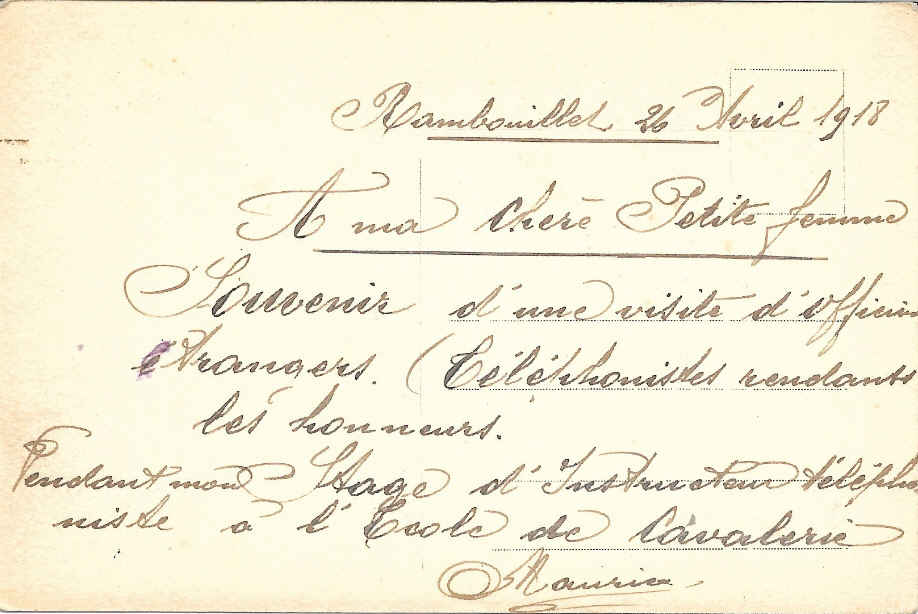 Rambouillet 26 Avril 1918
A ma chere Petite femme
Souvenir d'une visite d'officiers
étrangers. (Téléphonistes rendants
les honneurs.
Pendant mon Stage d'Instructeur télépho
niste à l'Ecole de Cavalerie
Maurice